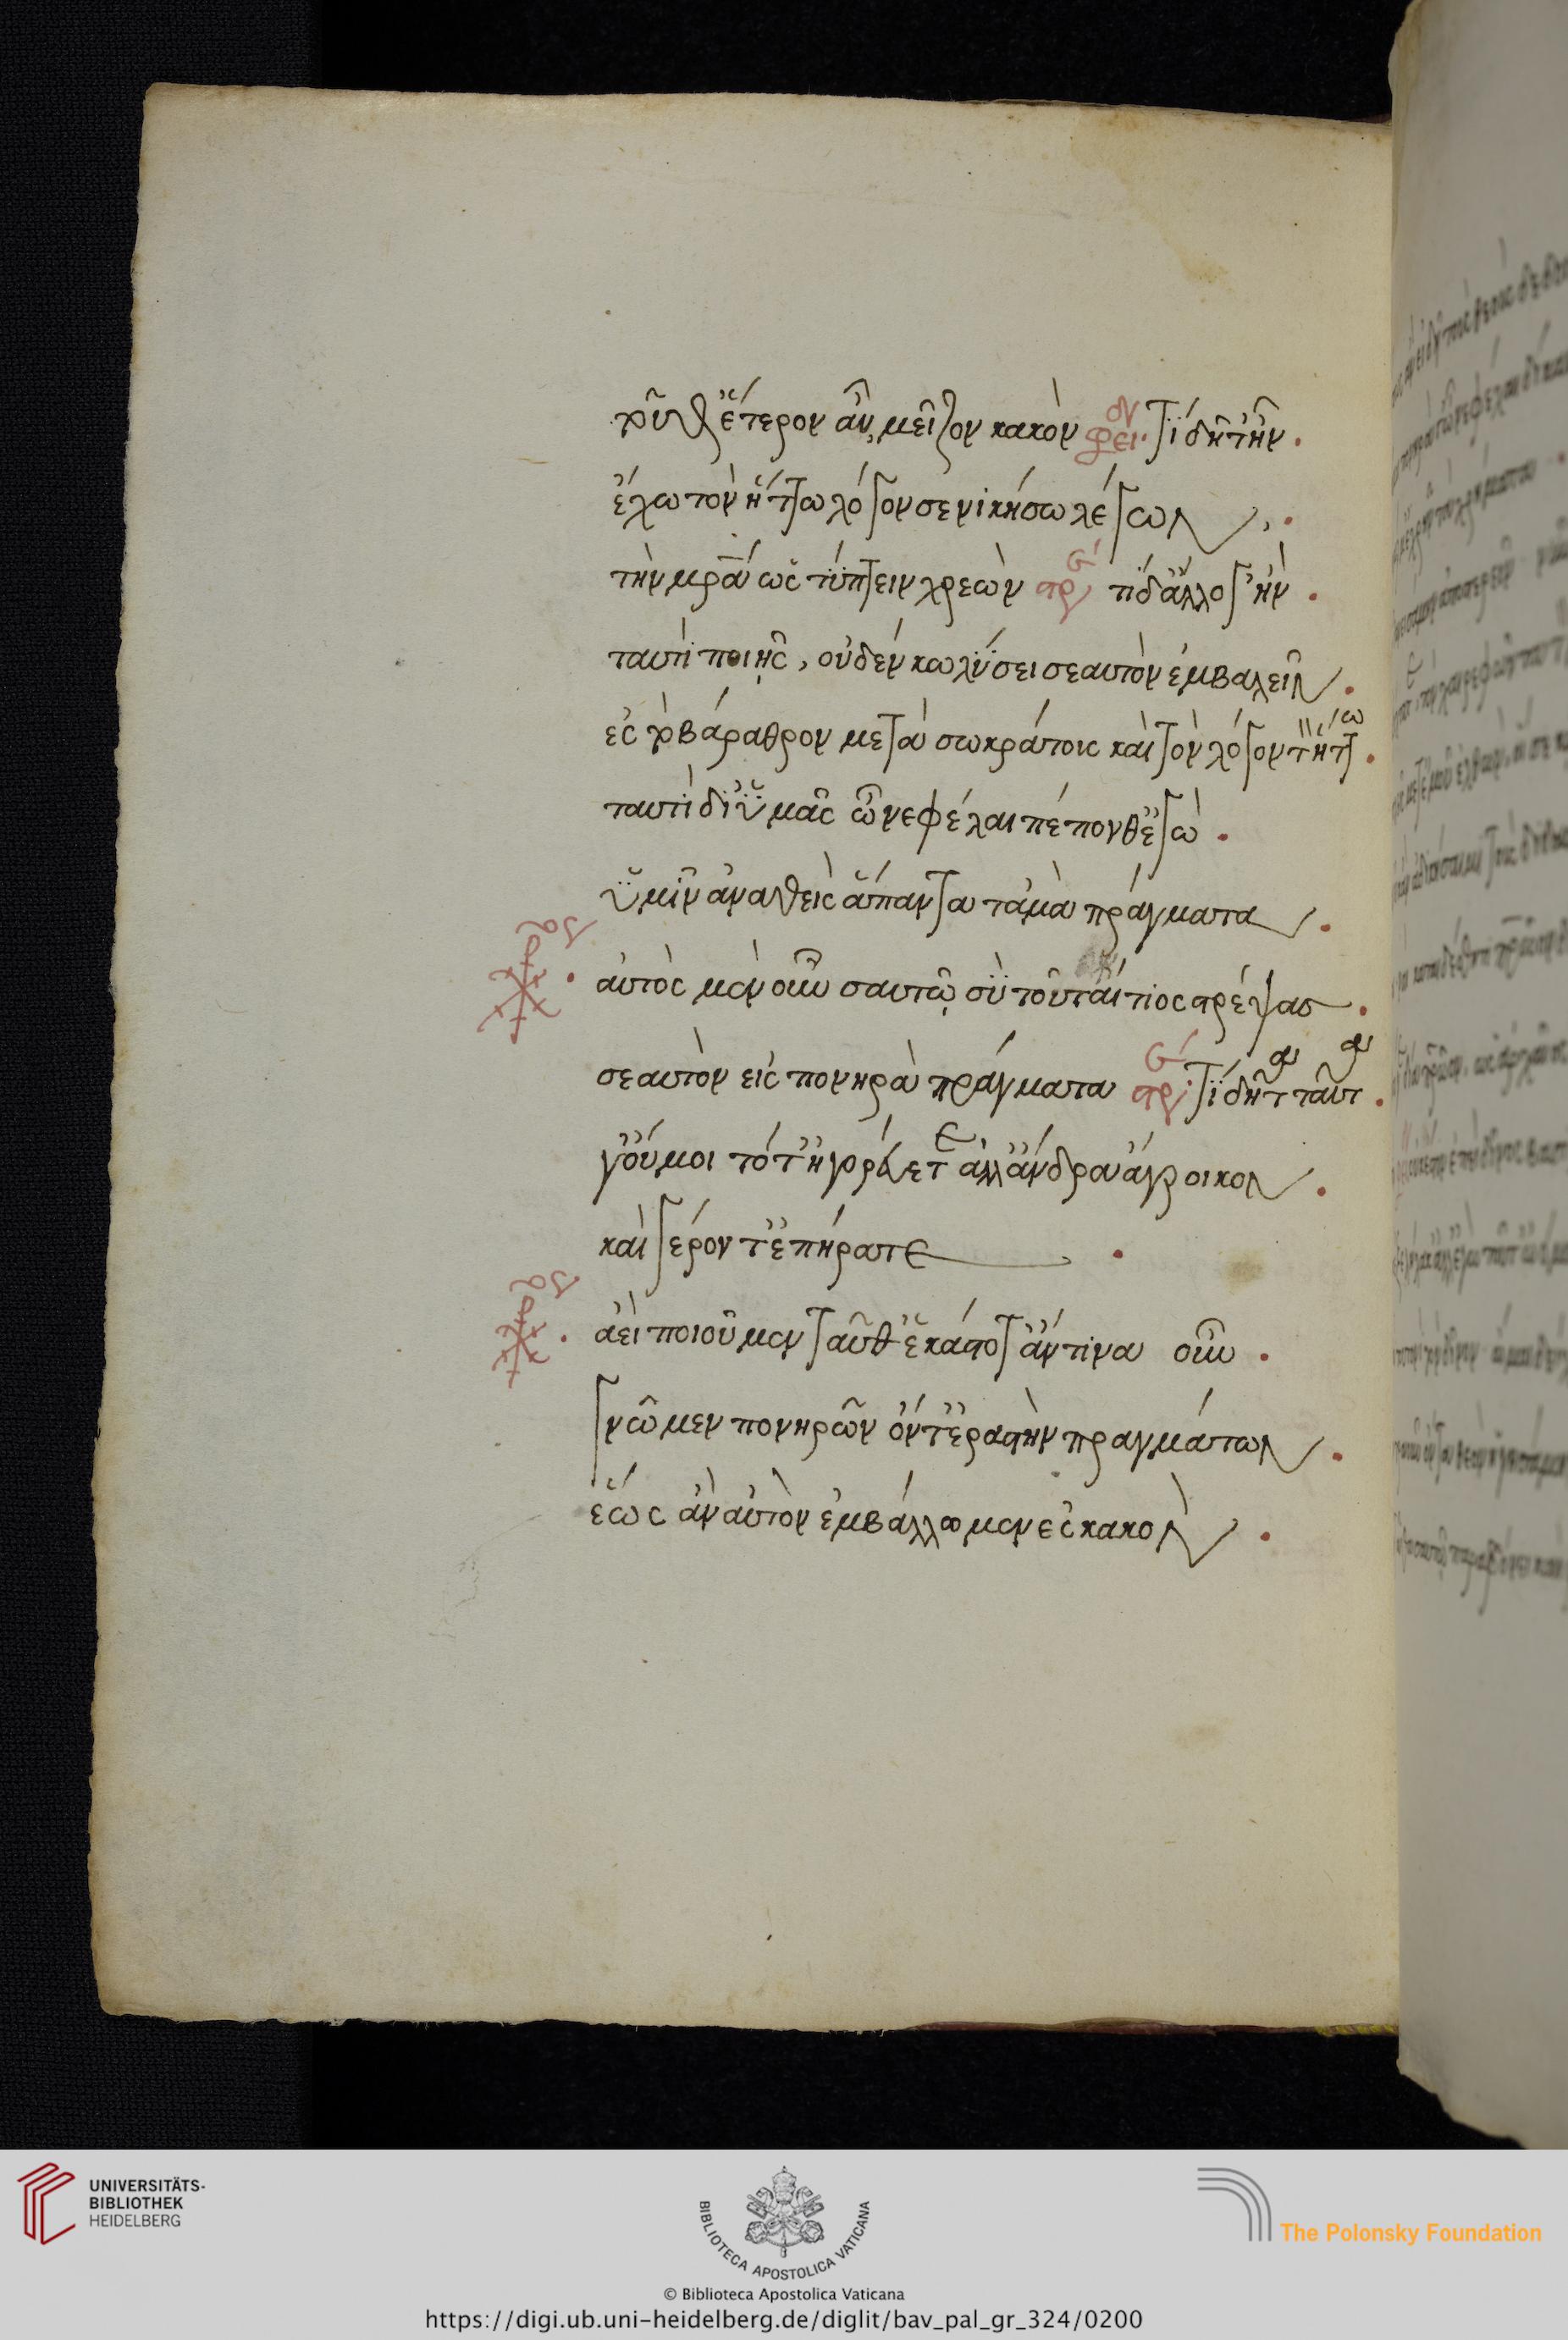 τοῦθ ἕτερον αὖ μεῖζον κακὸν φει τί δῆτ ἢν
ἔχω τὸν ἥττω λόγον σε νικήσω λέγων
τὴν μρα ὡς τύπτειν χρεὼν στρ τί δ ἄλλο γ ἢν
ταυτὶ ποιῇς, οὐδέν κωλύσει σεαυτὸν ἐμβαλεῖν
ἐς τὸ βάραθρον μετὰ σωκράτους καὶ τὸν λόγον τ ἥττω
ταυτὶ δι ὑμᾶς ὦ νεφέλαι πέπονθ ἐγὼ
ὑμῖν ἀναθεὶς ἅπαντα τἀμὰ πράγματα
αὐτὸς μὲν οὖν σαυτῷ σὺ τοῦτ αἴτιος στρέψας
σεαυτὸν εἰς πονηρὰ πράγματα στρ τί δῆτα ταῦτ
γ οὔ μοι τότ ἠγορεύετ ἀλλ ἄνδρα ἄγροικον
καὶ γέροντ ἐπήρατε
ἀεὶ ποιοῦμεν ταῦθ ἑκάστοτ ἄν τινα οὖν
γνῶμεν πονηρῶν ὄντ ἐραστὴν πραγμάτων
ἕως ἂν αὐτὸν ἐμβάλλωμεν ἐς κακὸν
UNIVERSITÄTS-
BIBLIOTHEK
HEIDELBERG
BIBLIOTECA APOSTOLICA VATICANA
The Polonsky Foundation
© Biblioteca Apostolica Vaticana
https://digi.ub.uni-heidelberg.de/diglit/bav_pal_gr_324/0200